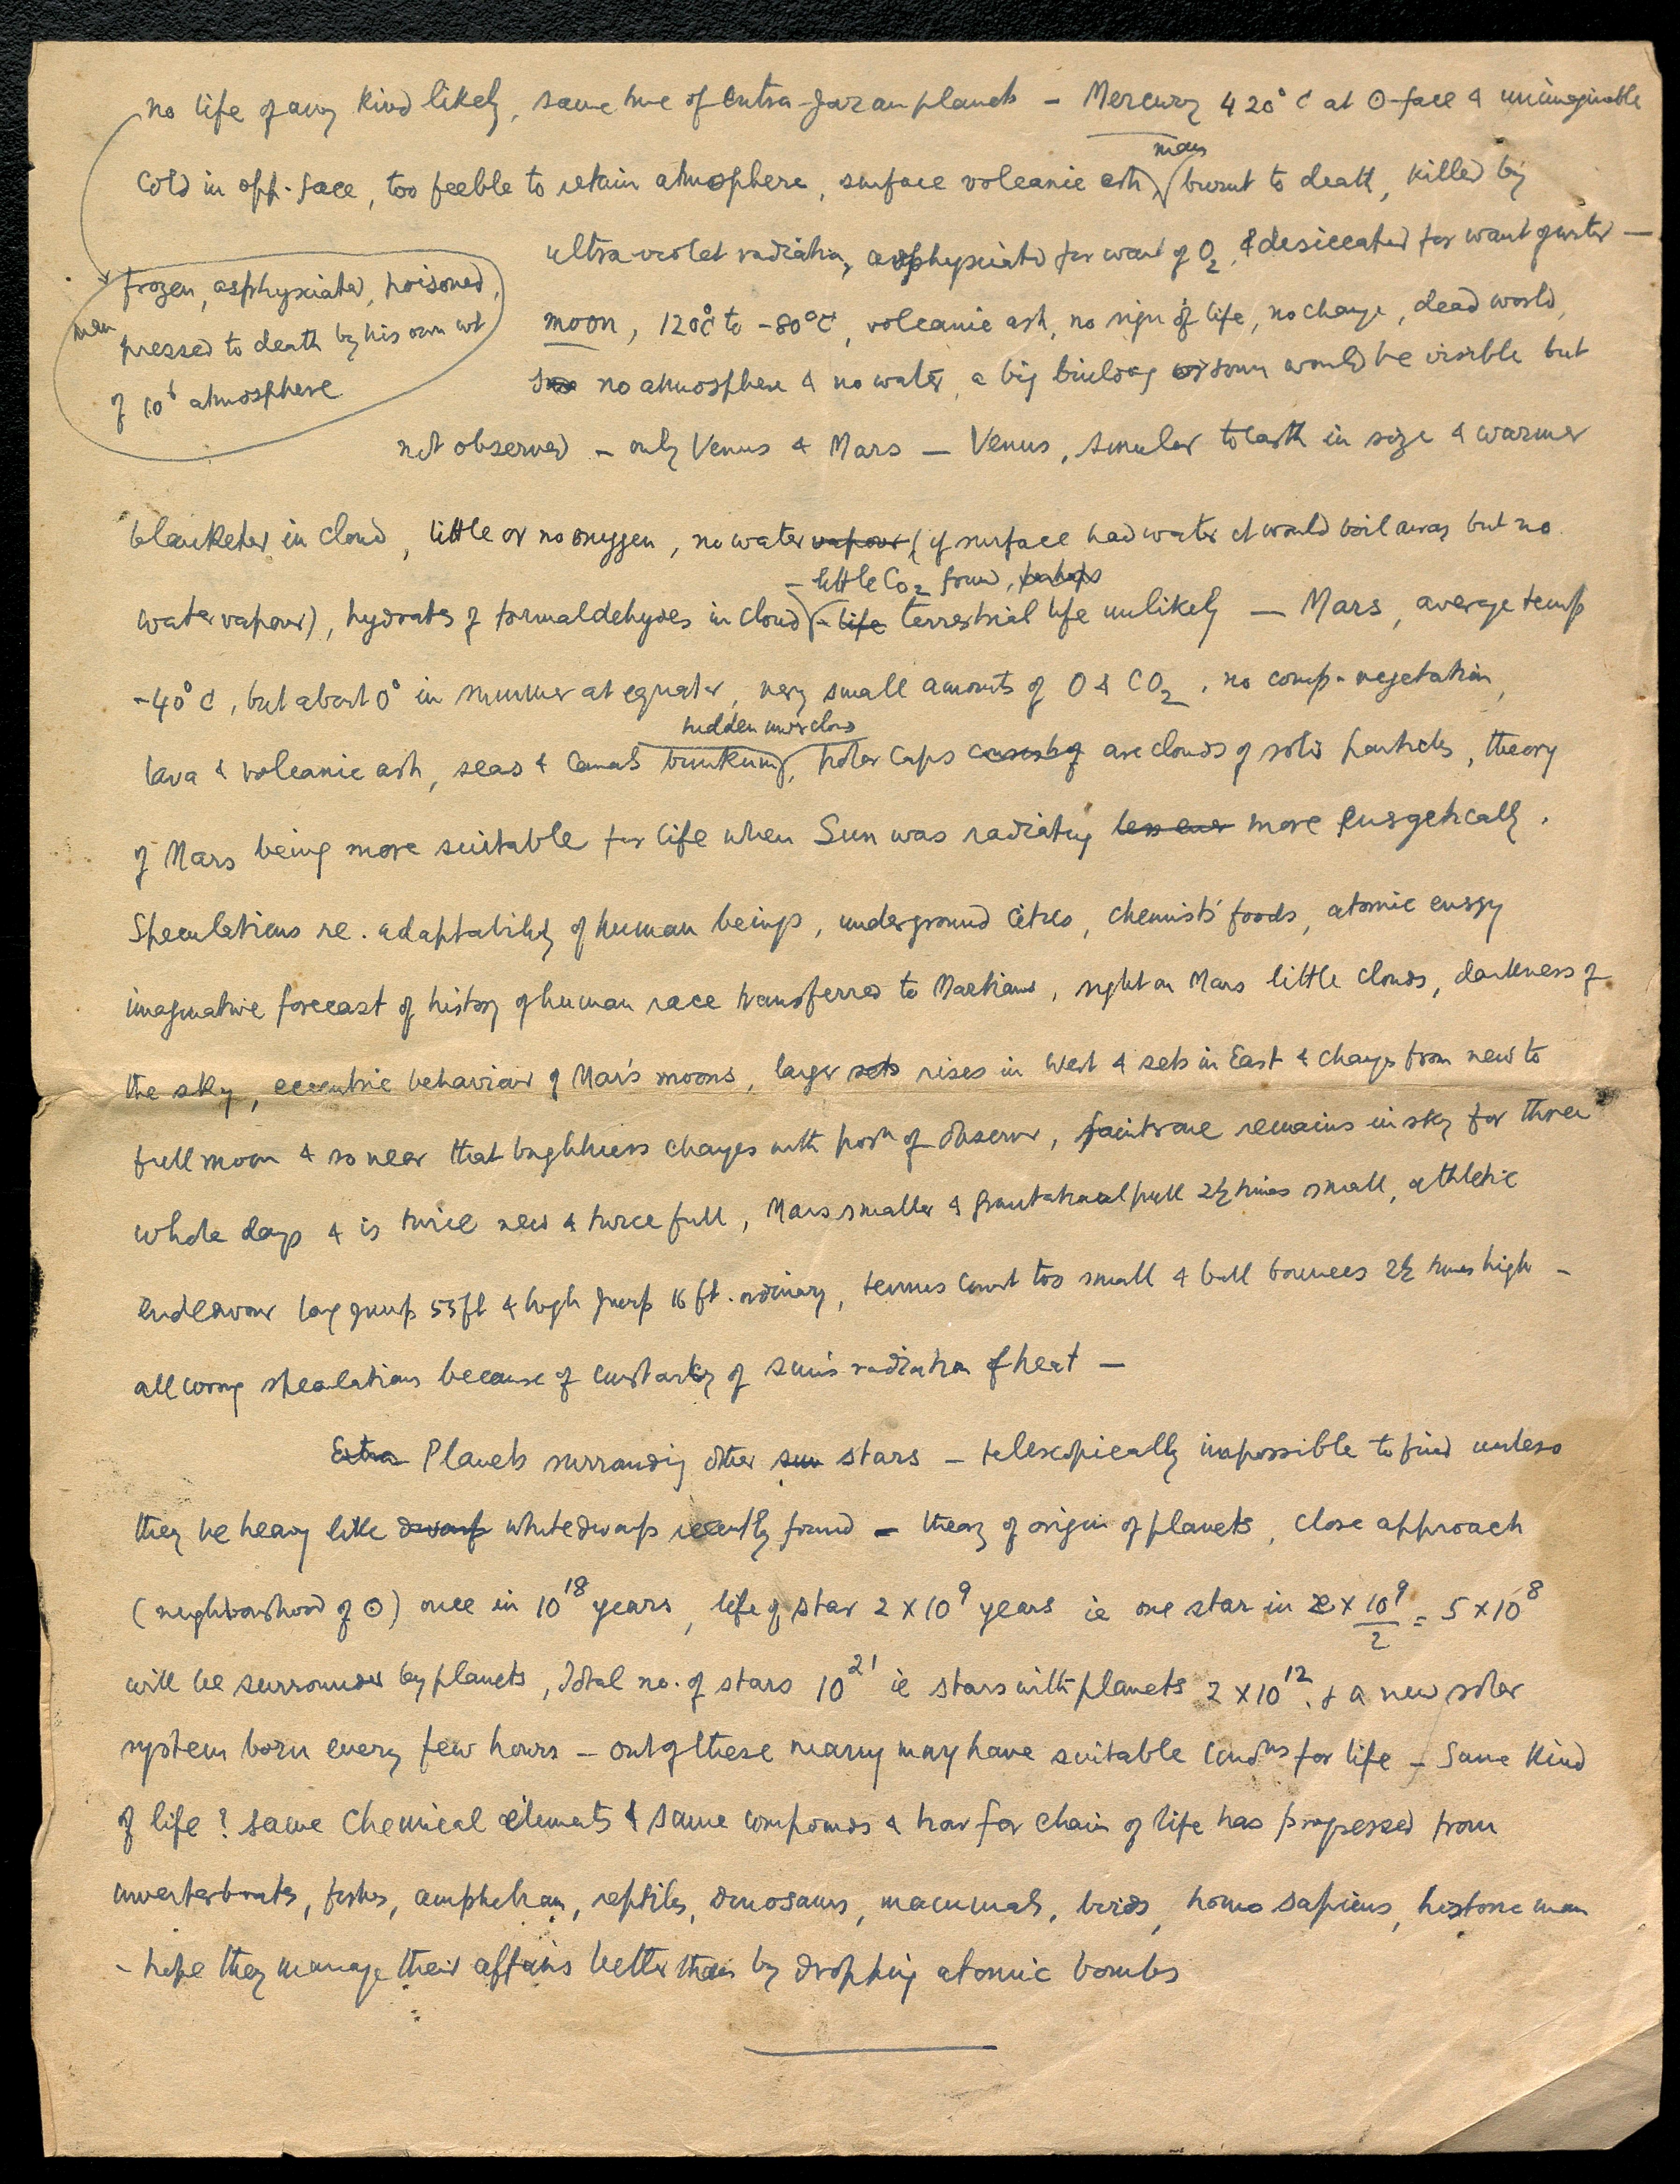 no life of any kind likely, same true of extra-Jovian planets – Mercury 420°C at ⊙-face & unimaginable
cold in opp. face, too feeble to retain atmosphere, surface volcanic ash, man burnt to death, killed by
ultra-violet radiation, asphyxiated for want of O2, & desiccated for want of water –
frozen, asphyxiated, poisoned,
man pressed to death by his own wt
of 10⁶ atmosphere
moon, 120°C to -80°C, volcanic ash, no sign of life, no change, dead world,
no atmosphere & no water, a big building or town would be visible but
not observed – only Venus & Mars – Venus, similar to earth in size & warmer
blanketed in cloud, little or no oxygen, no water vapour (if surface had water it would boil away but no
– little CO2 found, perhaps
water vapour), hydrates of formaldehydes in cloud – life terrestrial life unlikely – Mars, average temp
-40°C, but about 0° in summer at equator, very small amounts of O & CO2, no comp. vegetation,
hidden under cloud
lava & volcanic ash, seas & canals bunkum, polar caps are clouds of solid particles, theory
of Mars being more suitable for life when Sun was radiating less ener more energetically.
Speculations re. adaptability of human beings, underground cities, chemists' foods, atomic energy
imaginative forecast of history of human race transferred to Martians, night on Mars little clouds, darkness of
the sky, eccentric behaviour of Mars moons, larger sets rises in West & sets in East & changes from new to
full moon & so near that brightness changes with posn of observer, faint one remains in sky for three
whole days & is twice new & twice full, Mars smaller & gravitational pull 2½ times small, athletic
endeavour long jump 55ft & high jump 16 ft. ordinary, tennis court too small & ball bounces 2½ times high –
all wrong speculations because of constancy of sun's radiation of heat –
Extra Planets surrounding other sun stars – telescopically impossible to find unless
they be heavy like dwarf white dwarfs recently found – theory of origin of planets, close approach
(neighbourhood of ⊙) once in 10¹⁸ years, life of star 2 × 10⁹ years ie one star in 10⁹/2 = 5 × 10⁸
will be surrounded by planets, Total no. of stars 10²¹ ie stars with planets 2 × 10¹². & a new solar
system born every few hours – out of these many may have suitable condns for life – Same kind
of life? same Chemical elements & same compounds & how far chain of life has progressed from
invertebrates, fishes, amphibian, reptiles, dinosaurs, mammals, birds, homo sapiens, historic man
– hope they manage their affairs better than by dropping atomic bombs